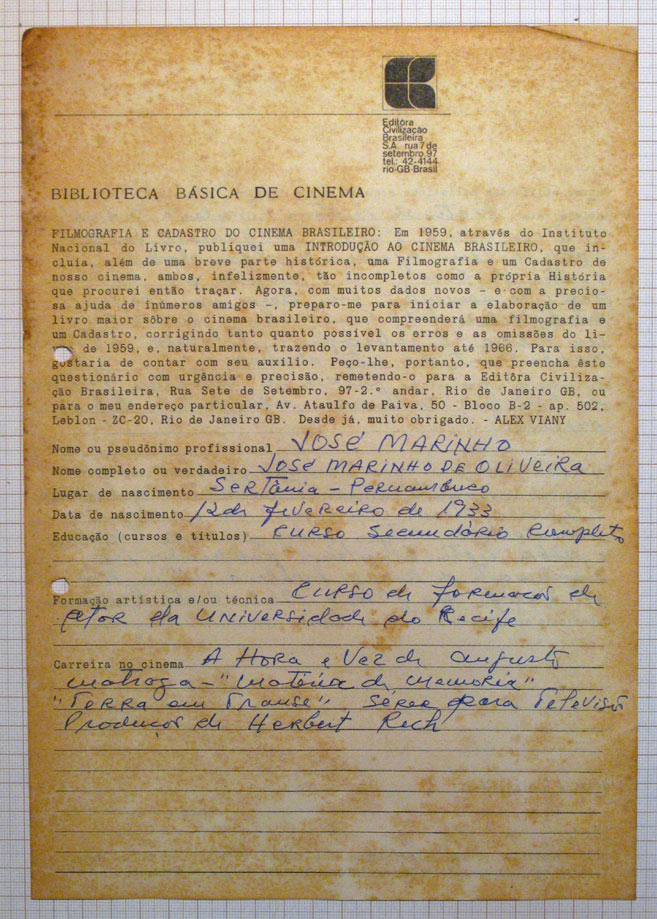 Editôra
Civilização
Brasileira
S.A. rua 7 de
setembro, 97
tel.: 42-4144
rio·GB·Brasil
BIBLIOTECA BÁSICA DE CINEMA
FILMOGRAFIA E CADASTRO DO CINEMA BRASILEIRO: Em 1959, através do Instituto
Nacional do Livro, publiquei uma INTRODUÇÃO AO CINEMA BRASILEIRO, que in-
cluía, além de uma breve parte histórica, uma Filmografia e um Cadastro de
nosso cinema, ambos, infelizmente, tão incompletos como a própria História
que procurei então traçar. Agora, com muitos dados novos - e com a precio-
sa ajuda de inúmeros amigos -, preparo-me para iniciar a elaboração de um
livro maior sôbre o cinema brasileiro, que compreenderá uma filmografia e
um Cadastro, corrigindo tanto quanto possível os erros e as omissões do li-
de 1959, e, naturalmente, trazendo o levantamento até 1966. Para isso,
gostaria de contar com seu auxílio. Peço-lhe, portanto, que preencha êste
questionário com urgência e precisão, remetendo-o para a Editôra Civiliza-
ção Brasileira, Rua Sete de Setembro, 97-2.º andar, Rio de Janeiro GB, ou
para o meu endereço particular, Av. Ataulfo de Paiva, 50 - Bloco B-2 - ap. 502,
Leblon - ZC-20, Rio de Janeiro GB. Desde já, muito obrigado. - ALEX VIANY
Nome ou pseudônimo profissional JOSÉ MARINHO
Nome completo ou verdadeiro JOSÉ MARINHO DE OLIVEIRA
Lugar de nascimento Sertânia - Pernambuco
Data de nascimento 12 de fevereiro de 1933
Educação (cursos e títulos) Curso Secundário Completo
Formação artística e/ou técnica Curso de formação de
Ator da Universidade do Recife
Carreira no cinema A Hora e Vez de Augusto
Matraga - "Matéria de Memória"
"Terra em Transe", Série para Televisão
Produção de Herbert Rech